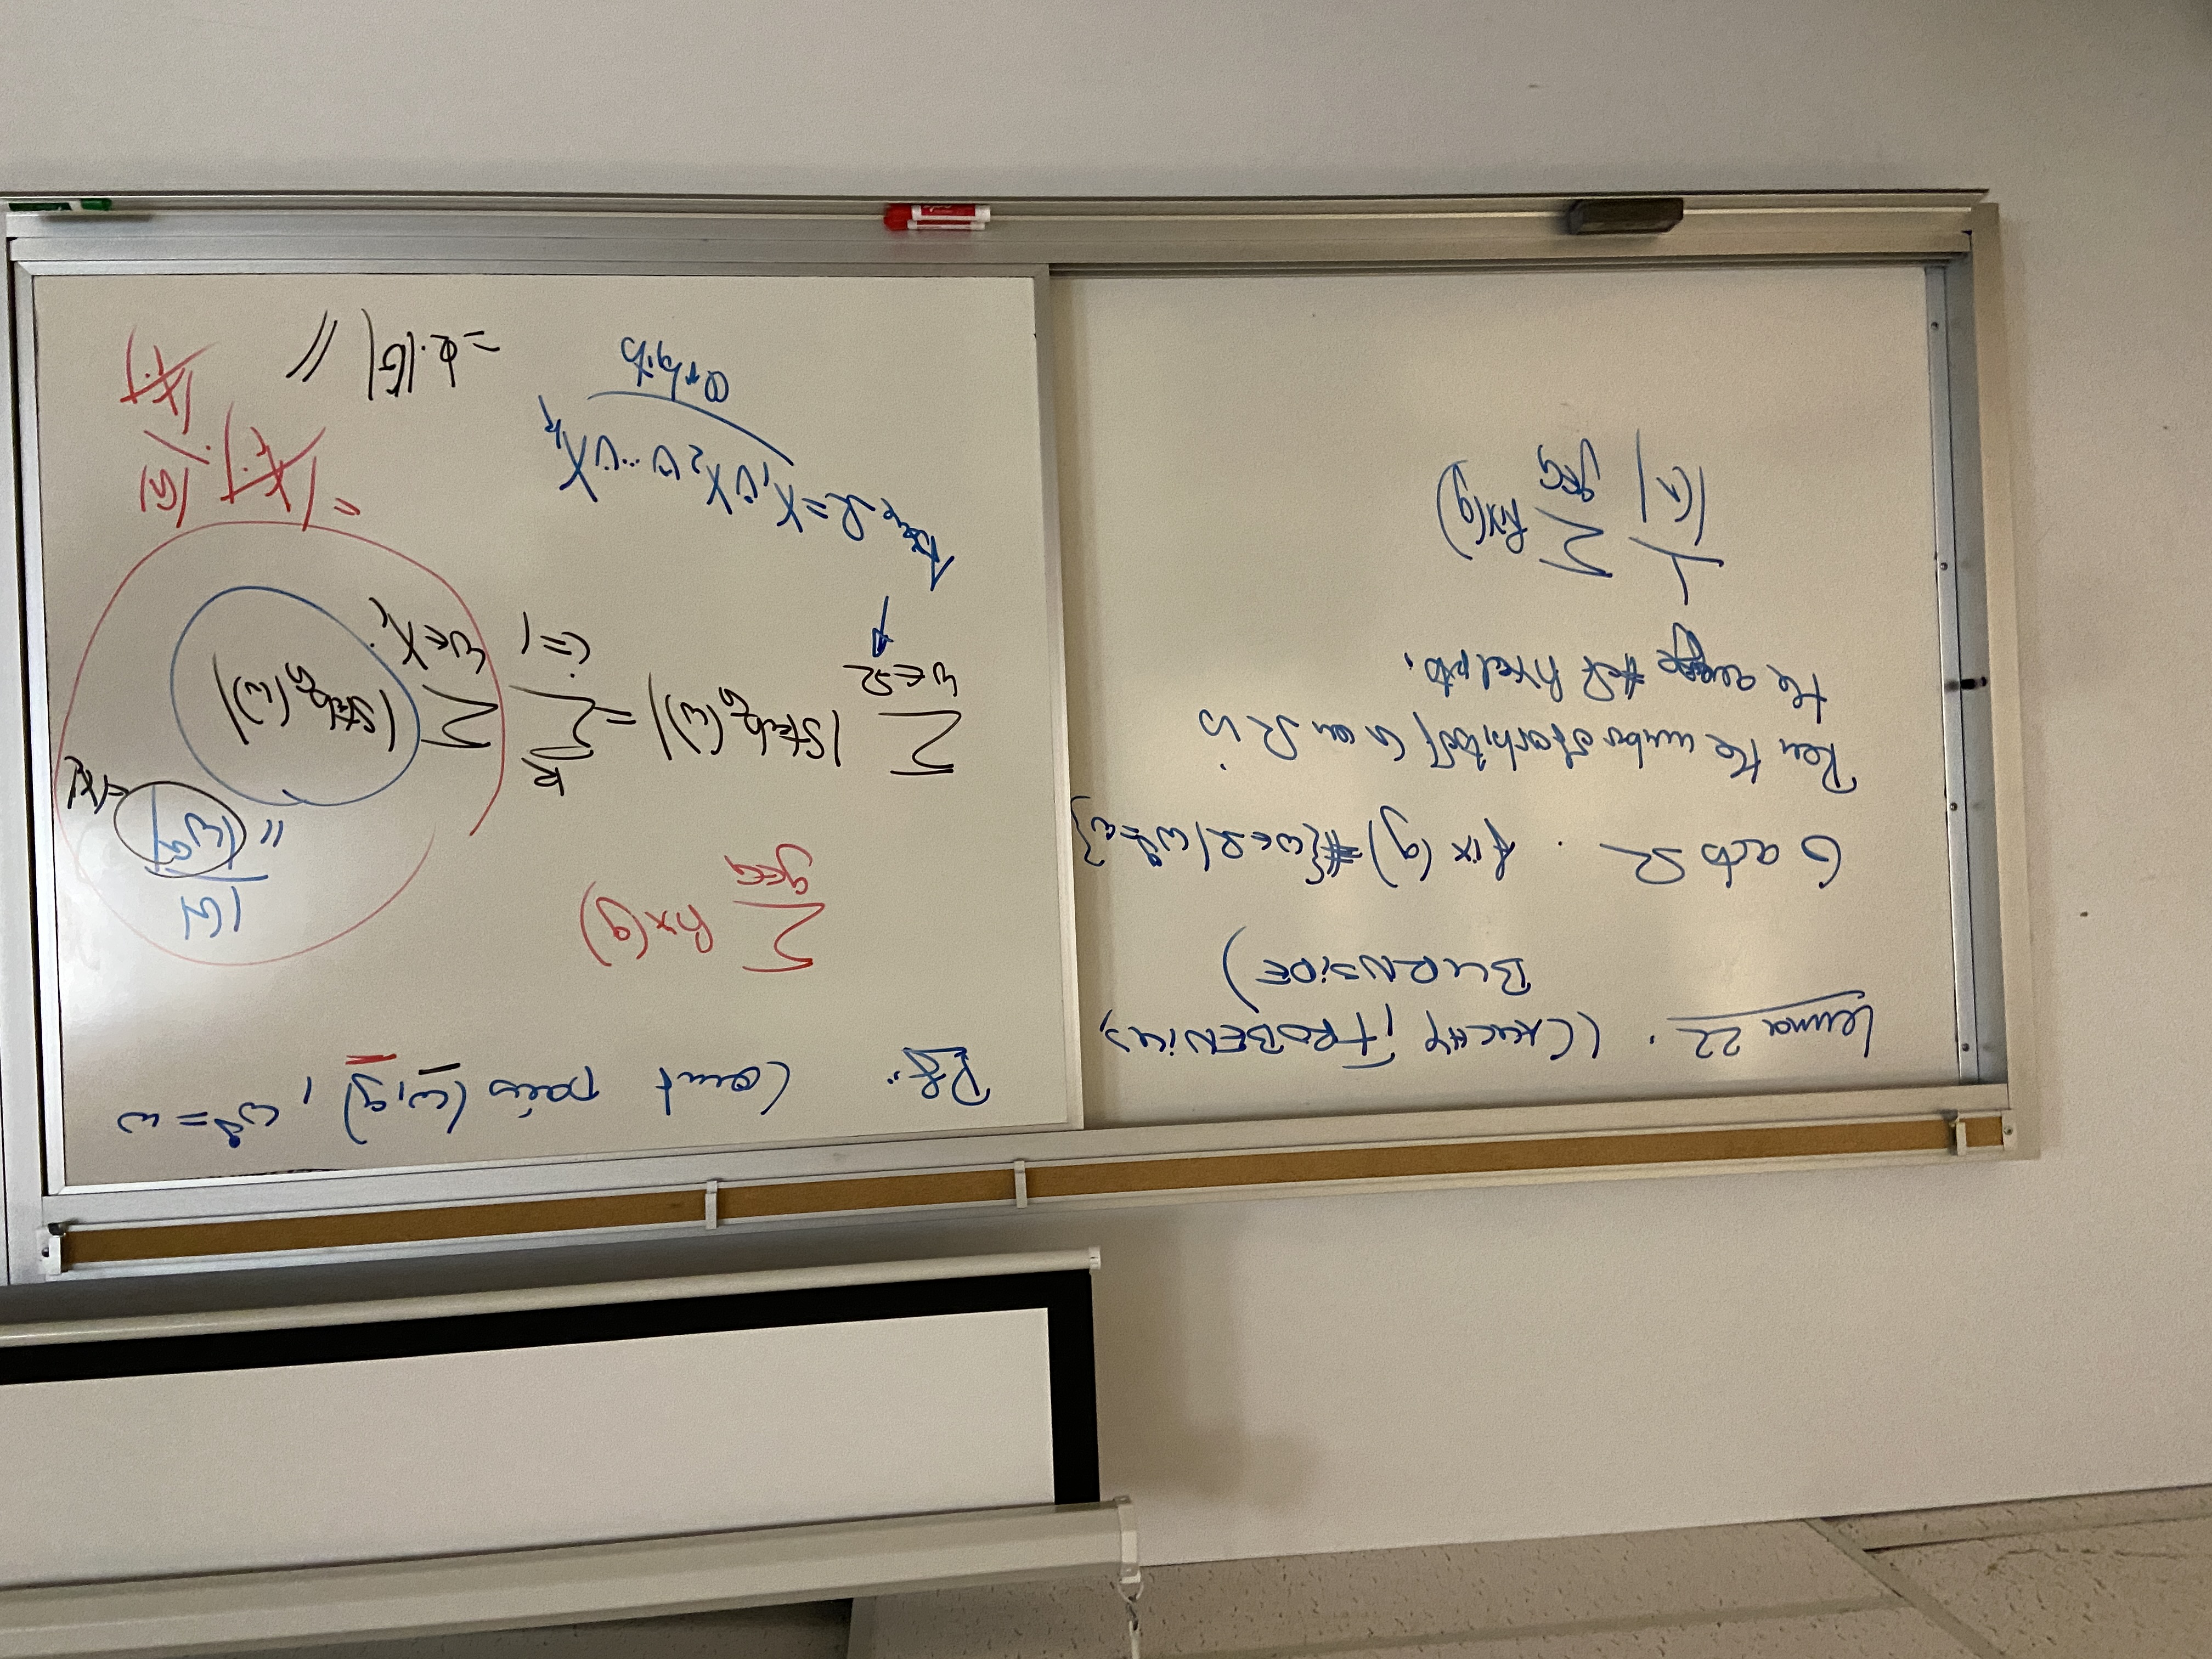 Lemma 22. (CAUCHY, FROBENIUS,
BURNSIDE)
G acts Ω. fix(g) = #{ω∈Ω | ω^g = ω}
Then the number of orbits of G on Ω is
the average # of fixed pts.
1/|G| Σ_{g∈G} fix(g)
Pf: Count pairs (ω,g), ω^g = ω
Σ_{g∈G} fix(g)
Σ_{ω∈Ω} |Stab_G(ω)| = Σ_{i=1}^{k} Σ_{ω∈X_i} |Stab_G(ω)|
= |G| / |ω^G| = |X_i|
Ω = X_1 ∪ X_2 ∪ ... ∪ X_k
orbits
= |X_i| · |G| / |X_i|
= k·|G| //